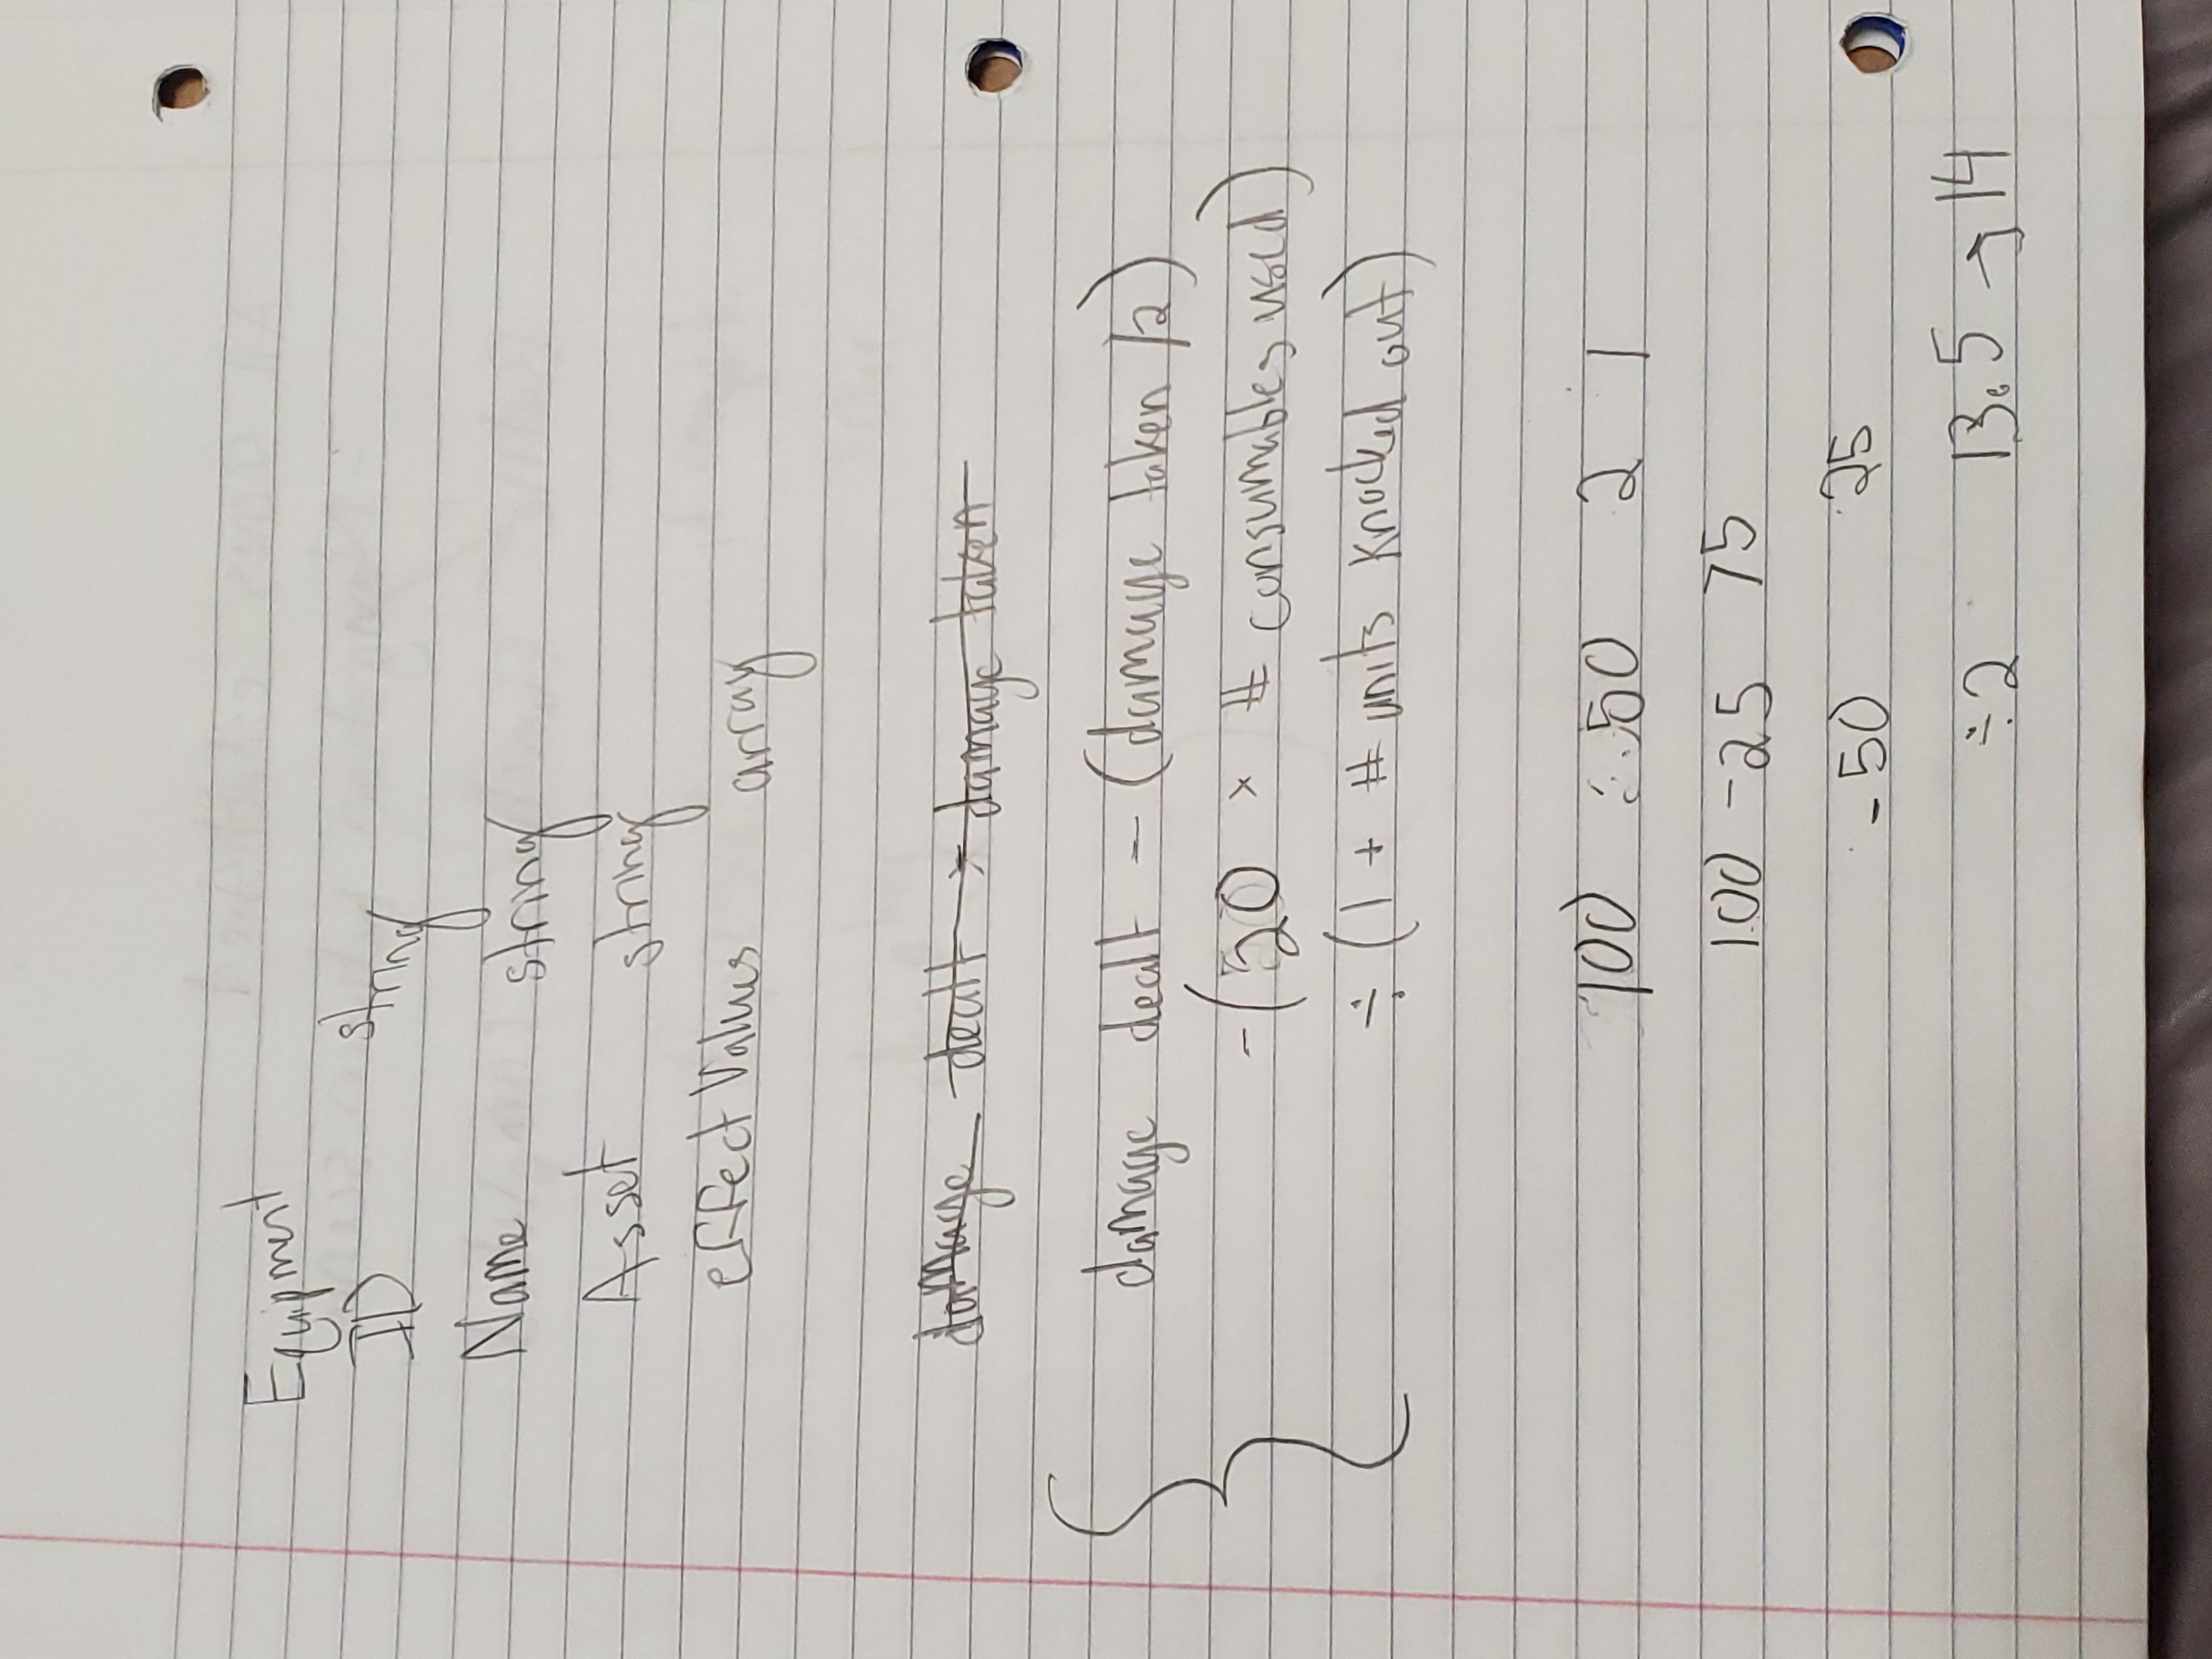 Equipment
ID string
Name string
Asset string
effect Values array
damage dealt - damage taken
damage dealt - (damage taken /2)
-(20 × # consumables used)
÷ (1 + # units knocked out)
100 50 2 1
100 -25 75
-50 25
÷2 13.5 → 14